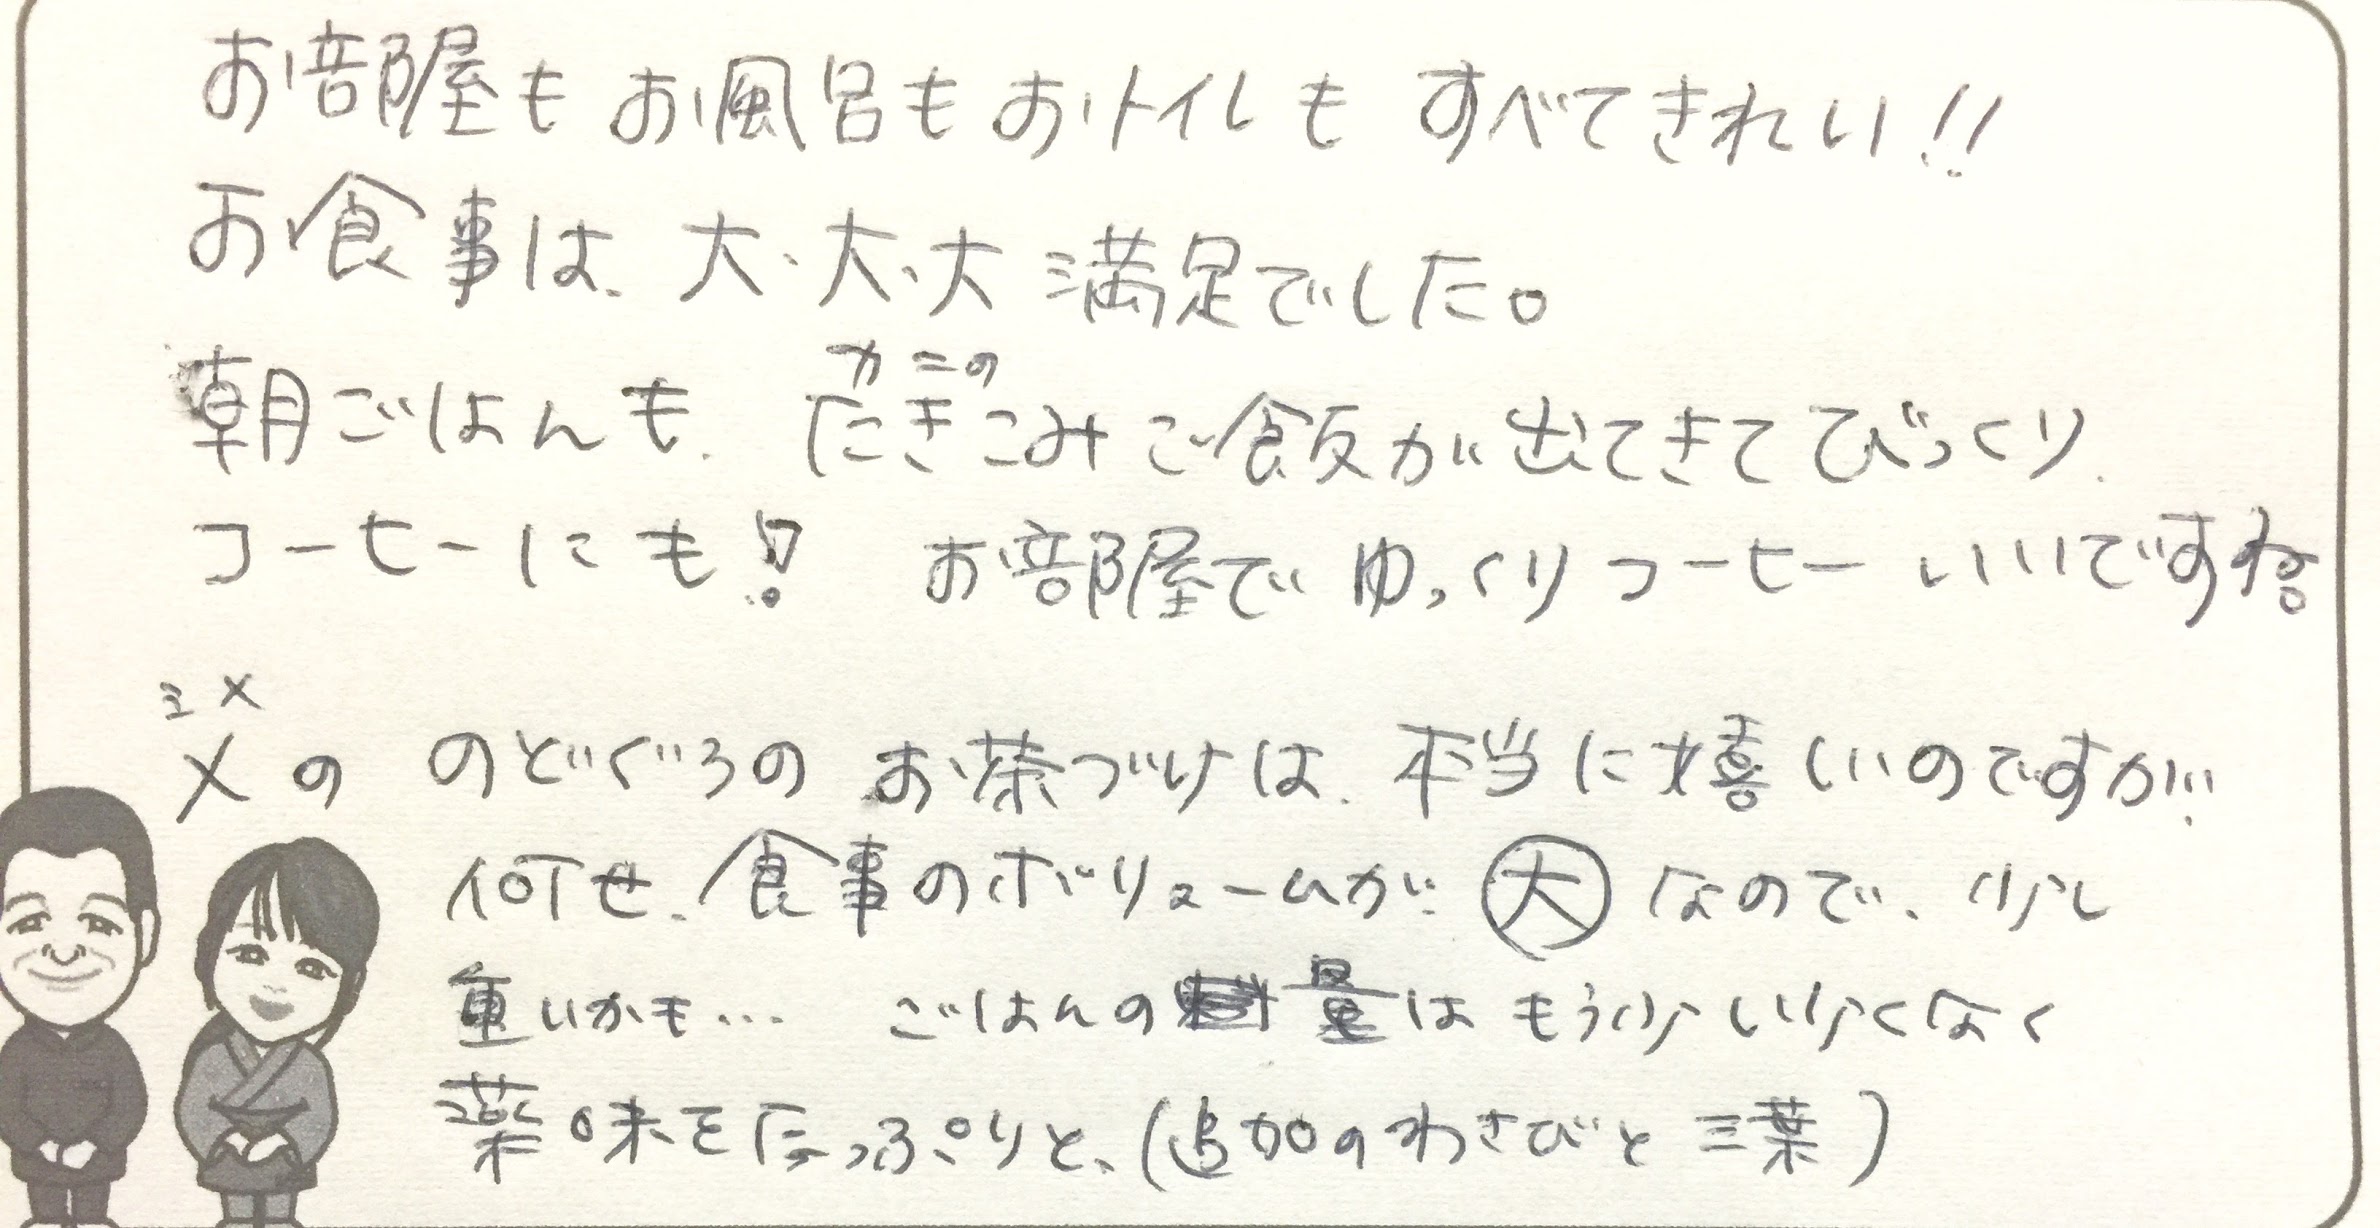 お部屋もお風呂もおトイレもすべてきれい!!
お食事は、大、大、大満足でした。
朝ごはんも、カニのたきこみご飯が出てきてびっくり、
コーヒーにも! お部屋でゆっくりコーヒーいいですね。
シメ
〆ののどぐろのお茶づけは、本当に嬉しいのですが…
何せ、食事のボリュームが㊅なので、少し
重いかも… ごはんの量はもう少し少くなく
薬味をたっぷりと、(追加のわさびと三葉)